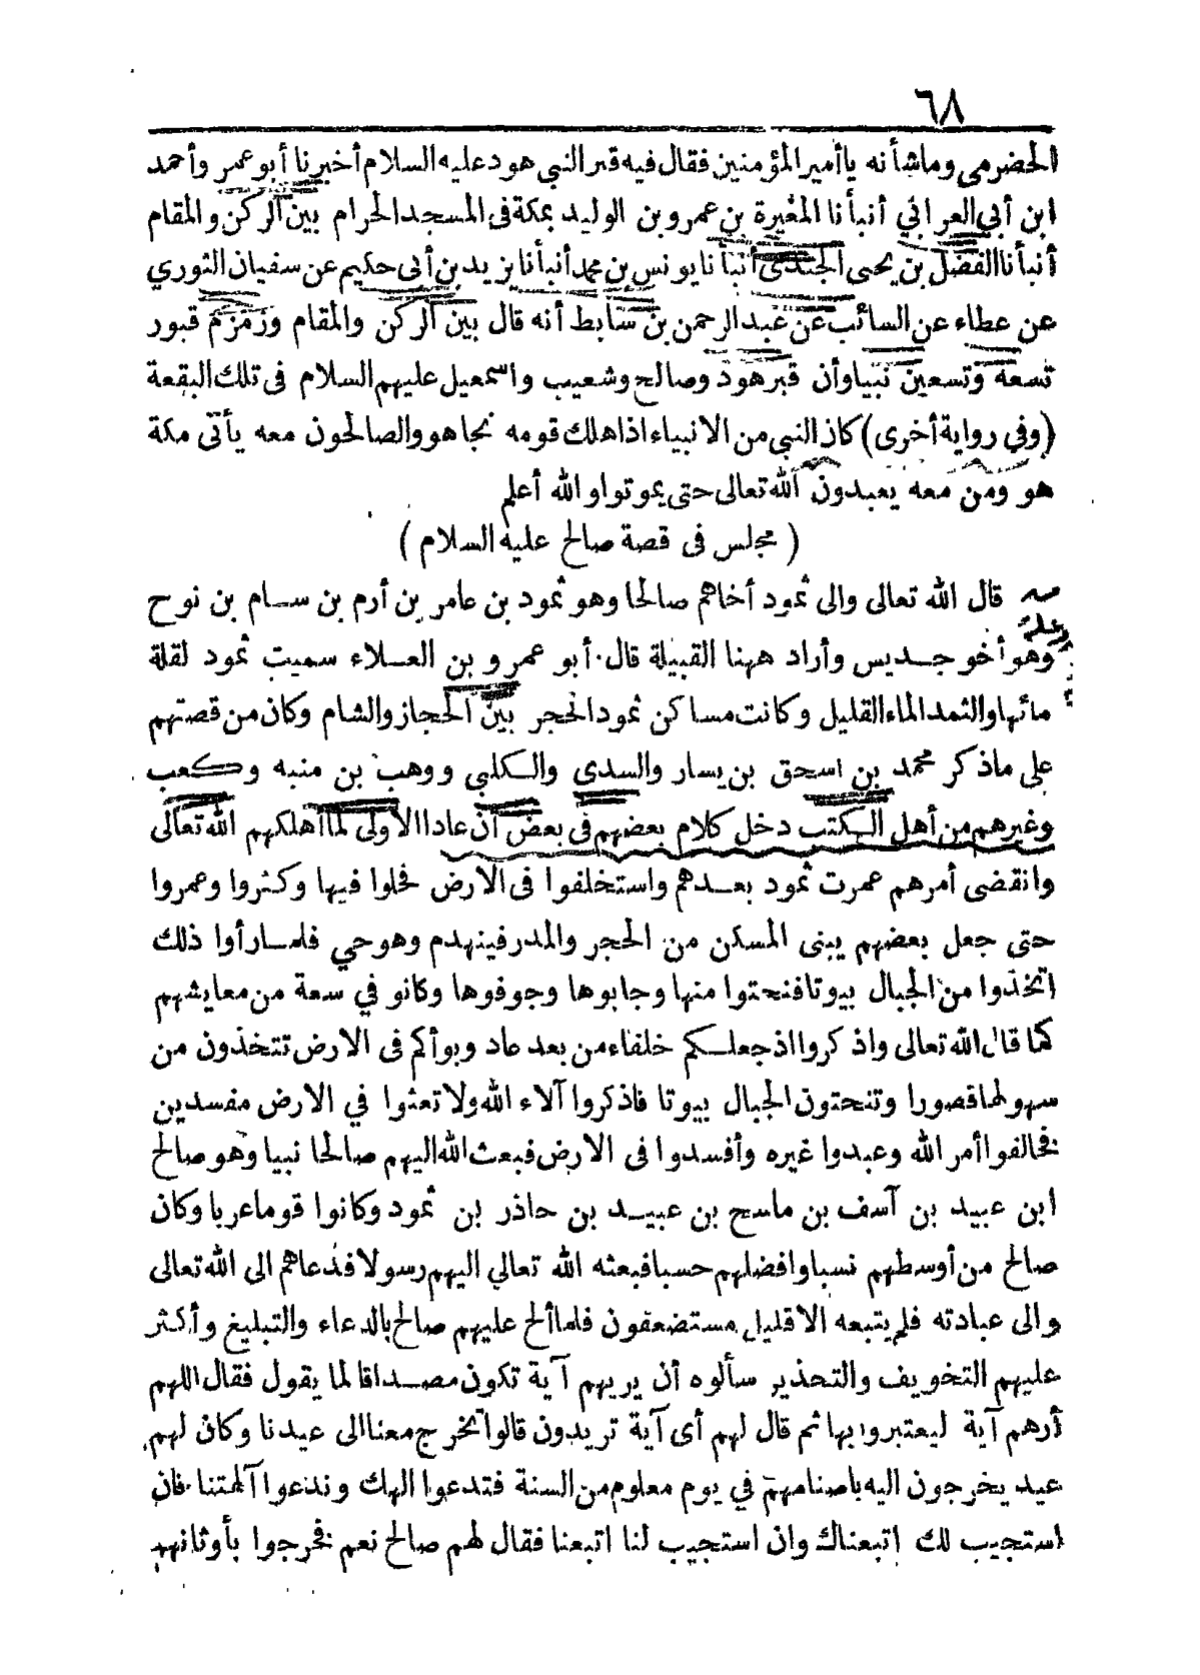 ٦٨
الحضرمى وما شأنه يا أمير المؤمنين فقال فيه قبر النبي هود عليه السلام أخبرنا أبو عمر وأحمد
ابن أبي العراقي أنبأنا المغيرة بن عمرو بن الوليد بمكة فى المسجد الحرام بين الركن والمقام
أنبأنا الفضل بن يحيى الجندى أنبأنا يونس بن محمد أنبأنا يزيد بن أبى حكيم عن سفيان الثوري
عن عطاء عن السائب عن عبد الرحمن بن سابط أنه قال بين الركن والمقام وزمزم قبور
تسعة وتسعين نبيا وأن قبر هود وصالح وشعيب واسمعيل عليهم السلام فى تلك البقعة
(وفي رواية أخرى) كان النبي من الانبياء اذا هلك قومه نجا هو والصالحون معه يأتى مكة
هو ومن معه يعبدون الله تعالى حتى يموتوا والله أعلم
( مجلس فى قصة صالح عليه السلام )
قال الله تعالى والى ثمود أخاهم صالحا وهو ثمود بن عامر بن أرم بن سـام بن نوح
وهو أخو جـديس وأراد ههنا القبيلة قال أبو عمرو بن العـلاء سميت ثمود لقلة
مائها والثمد الماء القليل وكانت مساكن ثمود الحجر بين الحجاز والشام وكان من قصتهم
على ماذكر محمد بن اسحق بن يسار والسدي والكلبي ووهب بن منبه وكعب
وغيرهم من أهل الكتب دخل كلام بعضهم فى بعض أن عادا الاولى لما أهلكهم الله تعالى
وانقضى أمرهم عمرت ثمود بعـدهم واستخلفوا فى الارض فحلوا فيها وكثروا وعمروا
حتى جعل بعضهم يبنى المسكن من الحجر والمدر فينهدم وهو حي فلمـا رأوا ذلك
اتخذوا من الجبال بيوتا فنحتوا منها وجابوها وجوفوها وكانو في سعة من معايشهم
كما قال الله تعالى واذكروا اذ جعلـكم خلفاء من بعد عاد وبوأكم فى الارض تتخذون من
سهولها قصورا وتنحتون الجبال بيوتا فاذكروا آلاء الله ولا تعثوا في الارض مفسدين
فخالفوا أمر الله وعبدوا غيره وأفسدوا فى الارض فبعث الله اليهم صالحا نبيا وهو صالح
ابن عبيد بن آسف بن ماسح بن عبيـد بن حاذر بن ثمود وكانوا قوما عربا وكان
صالح من أوسطهم نسبا وافضلهم حسبا فبعثه الله تعالي اليهم رسولا فدعاهم الى الله تعالى
والى عبادته فلم يتبعه الا قليل مستضعفون فلما ألح عليهم صالح بالدعاء والتبليغ وأكثر
عليهم التخويف والتحذير سألوه أن يريهم آية تكون مصـداقا لما يقول فقال اللهم
أرهم آية ليعتبروا بها ثم قال لهم أى آية تريدون قالوا تخرج معنا الى عيدنا وكان لهم
عيد يخرجون اليه باصنامهم في يوم معلوم من السنة فتدعوا الهك وندعوا آلهتنا فان
استجيب لك اتبعناك وان استجيب لنا اتبعنا فقال لهم صالح نعم فخرجوا بأوثانهم